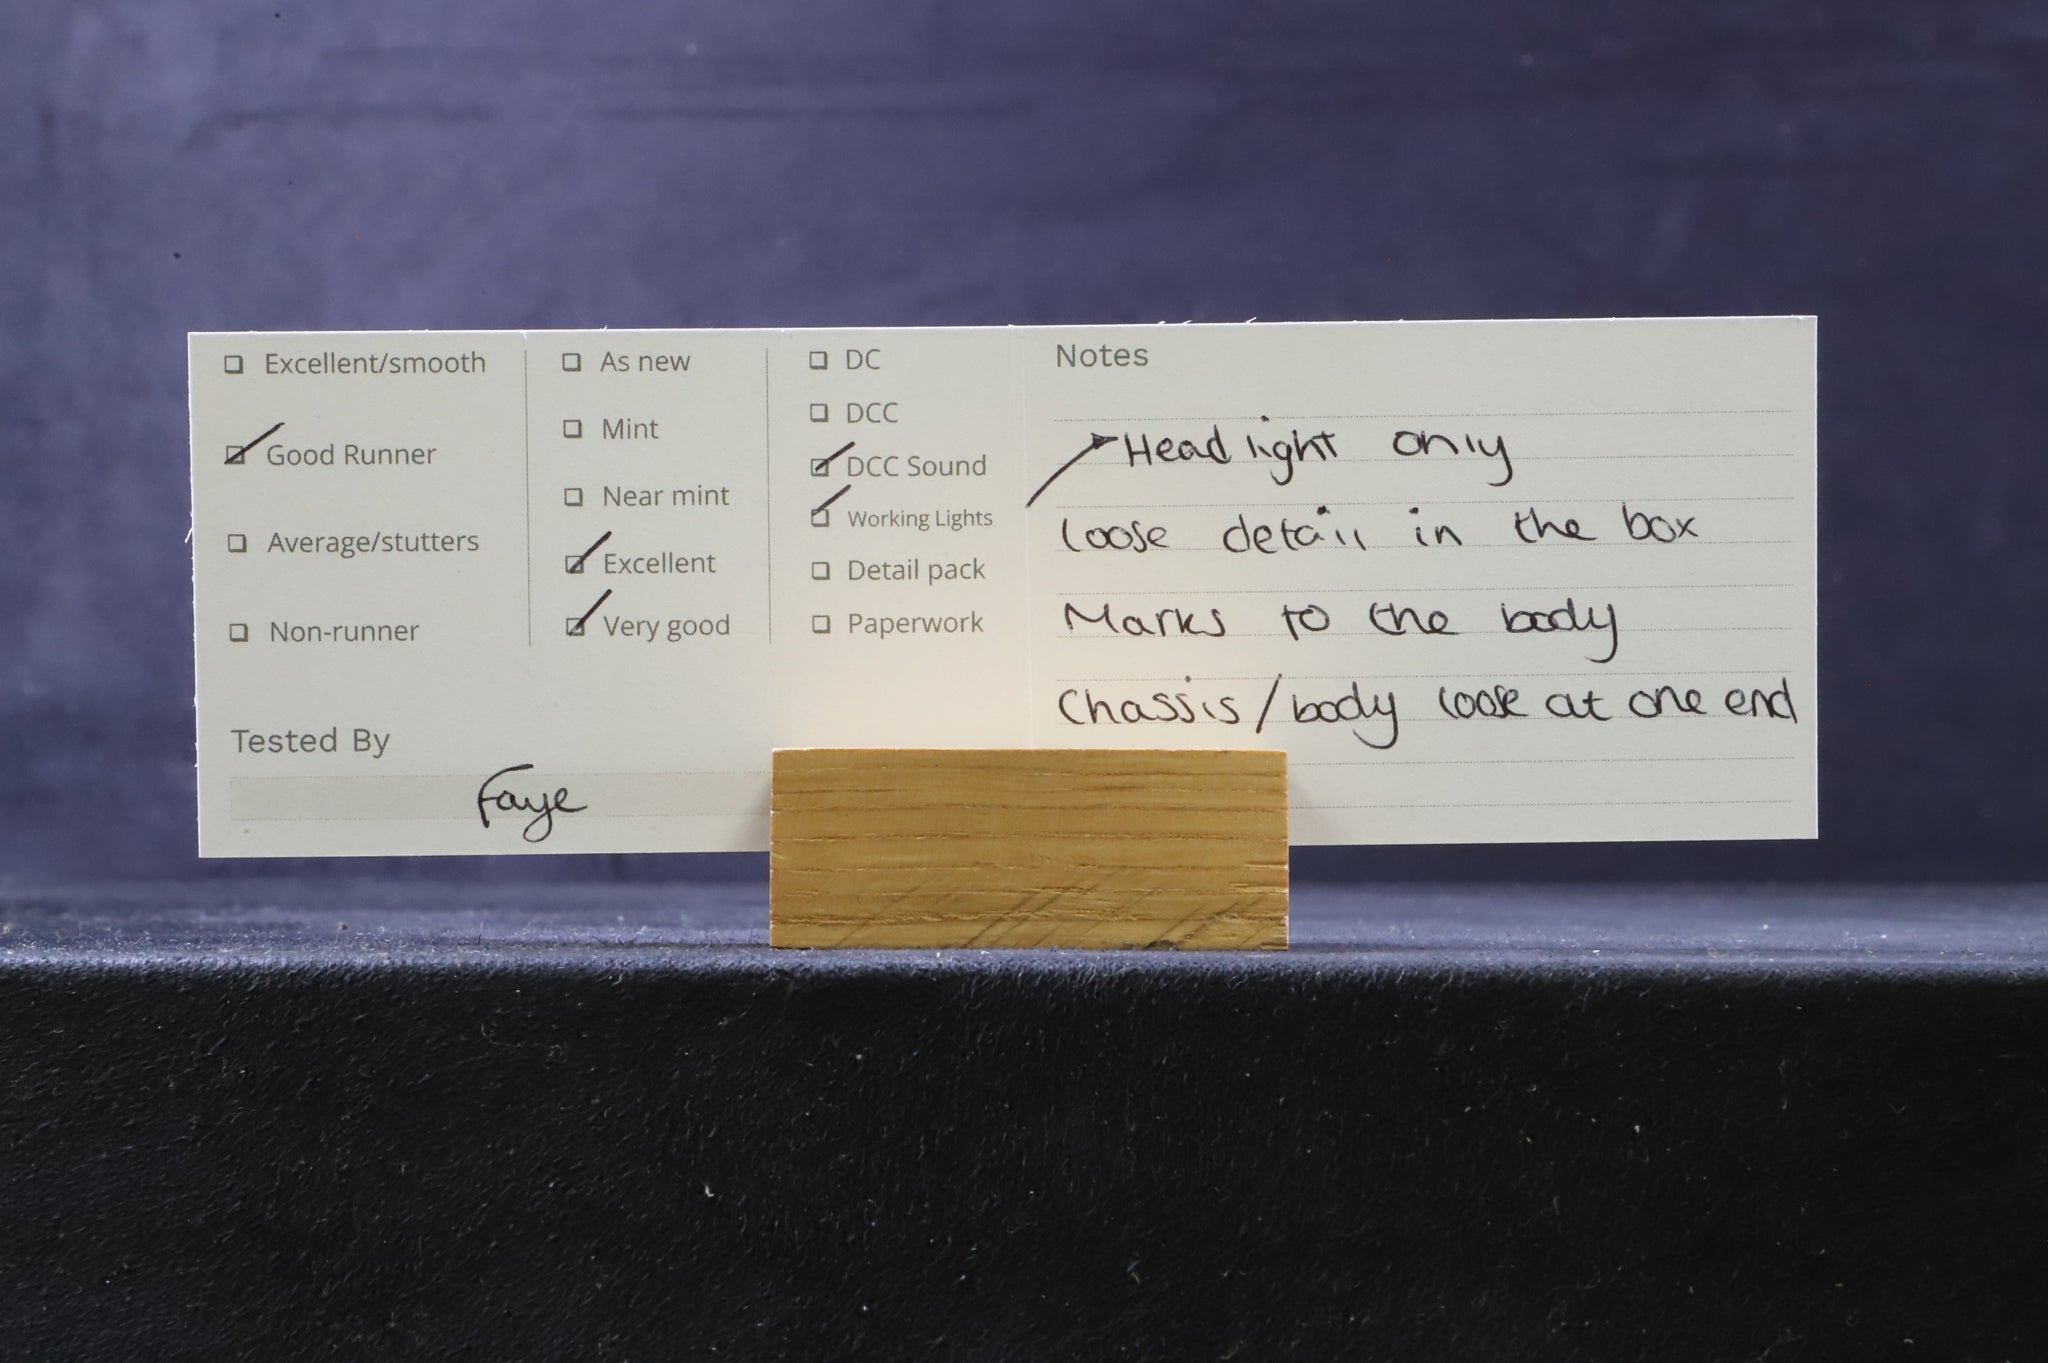 Excellent/smooth
Good Runner
Average/stutters
Non-runner
As new
Mint
Near mint
Excellent
Very good
DC
DCC
DCC Sound
Working Lights
Detail pack
Paperwork
Notes
Headlight only
loose detail in the box
Marks to the body
Chassis/body loose at one end
Tested By
Faye